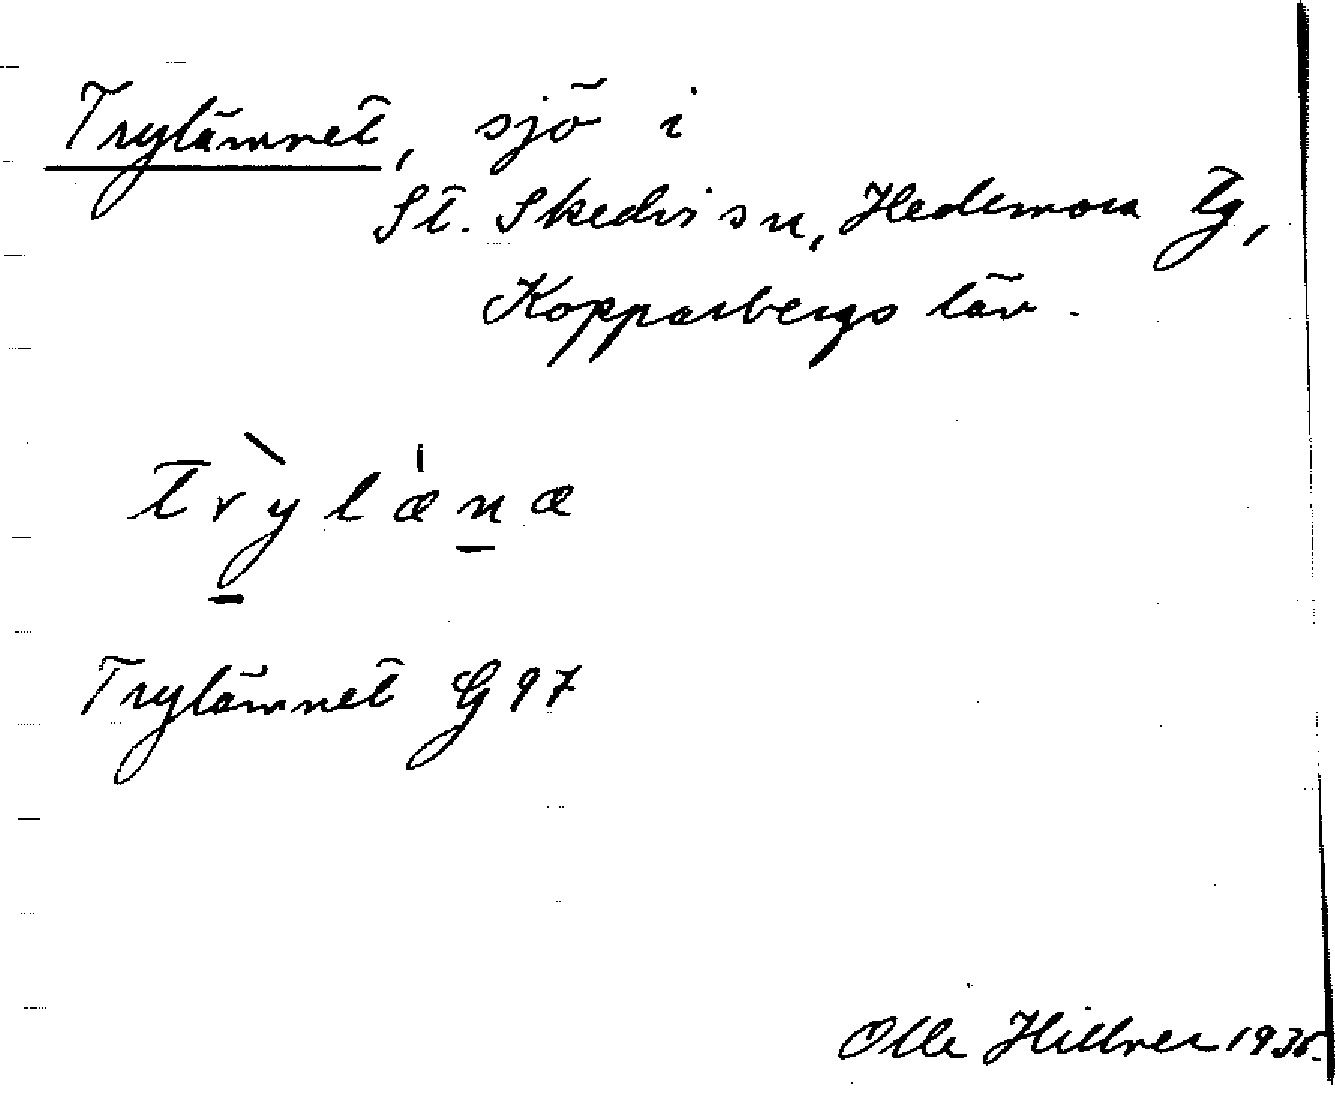 Trylämnet, sjö i
St. Skedvi sn, Hedemora tg,
Kopparbergs län.
trỳlænæ
Trylämnet G 97
Olle Hillner 1935.